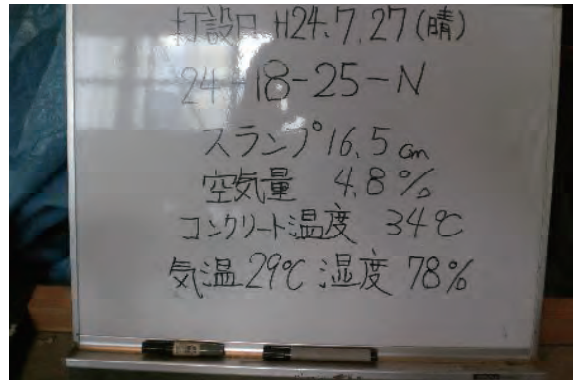 打設日 H24.7.27(晴)
24-18-25-N
スランプ 16.5cm
空気量 4.8%
コンクリート温度 34℃
気温29℃ 湿度 78%